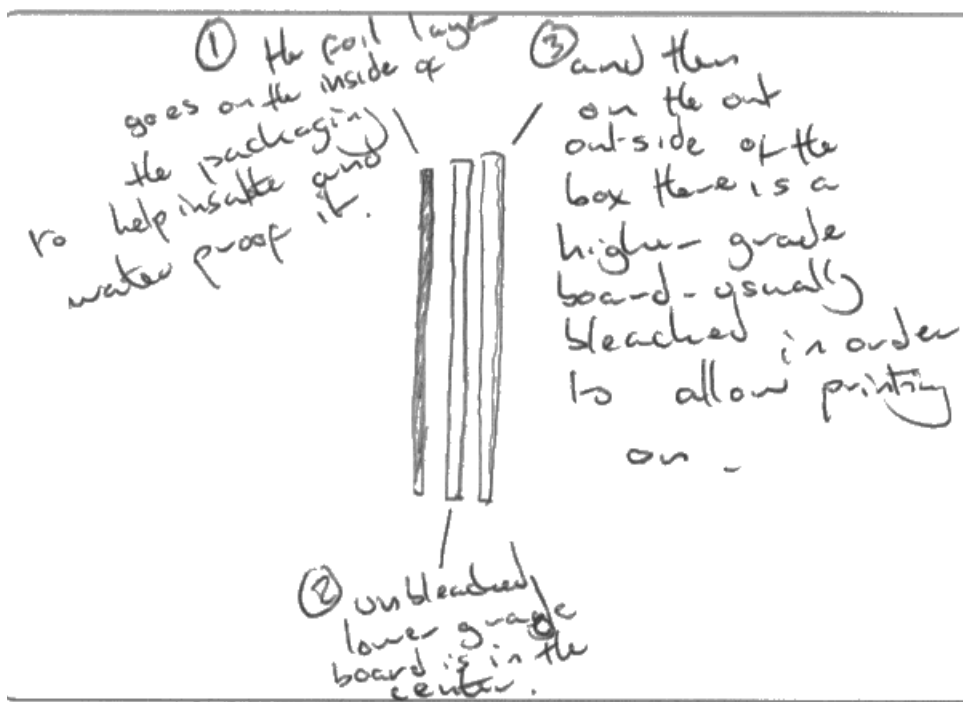 ① the foil layer
goes on the inside of
the packaging
to help insulate and
water proof it.
③ and then
on the out
outside of the
box there is a
higher grade
board - usually
bleached in order
to allow printing
on -
② unbleached
lower grade
board is in the
center.